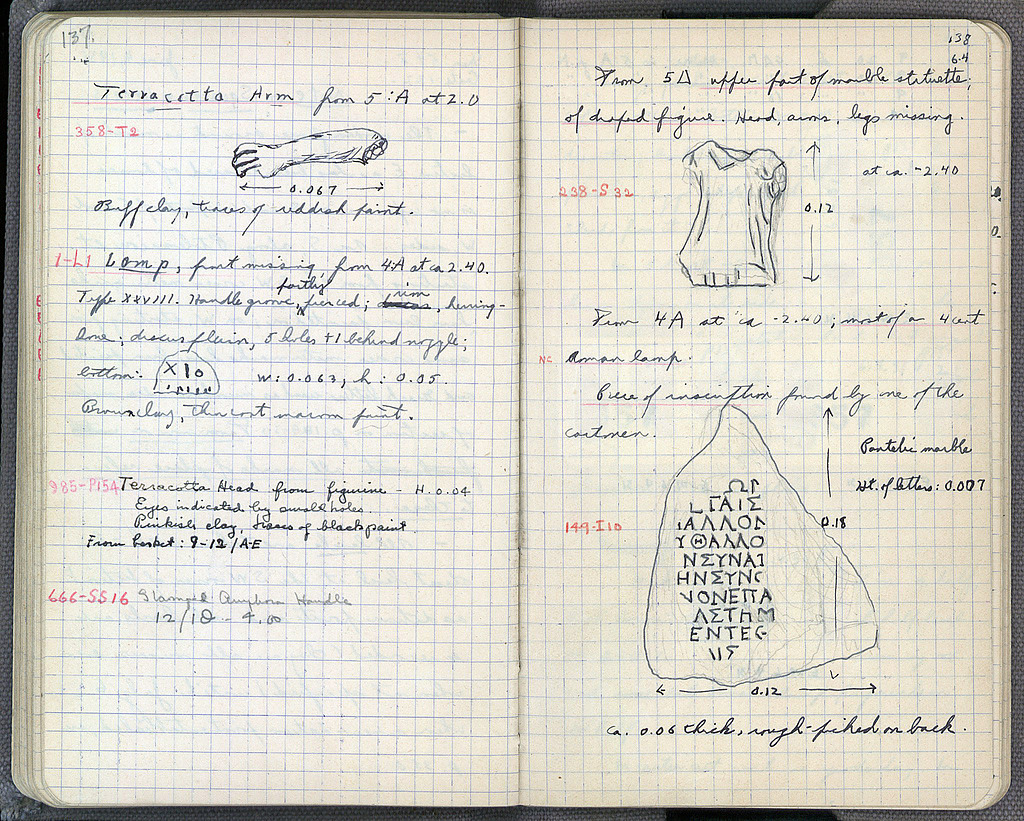 137.
Terracotta Arm from 5:A at 2.0
358-T2
0.067
Buff clay, traces of reddish paint.
1-L1 Lamp, part missing, from 4:A at ca 2.40.
partly
Type XXVIII. Handle groove, pierced; rim, herring-
bone; discus plain, 5 holes + 1 behind nozzle;
bottom: X I o w: 0.063, h: 0.05.
Brown clay, thin coat maroon paint.
985-P154 Terracotta Head from figurine - H. 0.04
Eyes indicated by small holes.
Pinkish clay, traces of black paint
From basket: 9-12/A-E
666-SS16 Stamped Amphora Handle
12/ - 4.00
138
6.4
From 5Δ upper part of marble statuette,
of draped figure. Head, arms, legs missing.
at ca. -2.40
238-S 32
0.12
From 4A at ca -2.40; most of a 4 cent
NC Roman lamp.
Piece of inscription found by one of the
cartmen.
Pentelic marble
Ht. of letters: 0.007
149-I 10
0.18
ΩΓ
ΓΑΙΣ
ΑΛΛΟΝ
ΥΘΑΛΛΟ
ΝΣΥΝΑΙ
ΗΝΣΥΝΟ
ΝΟΝΕΠΑ
ΛΣΤΗΜ
ΕΝΤΕΣ
ΙΙΣ
0.12
ca. 0.06 thick, rough-picked on back.